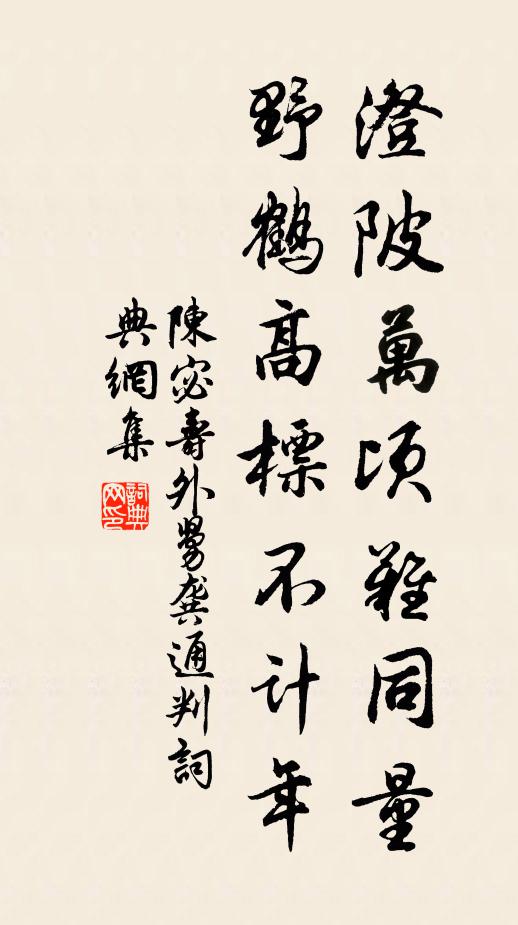 澄陂萬頃難同量
野鶴高標不計年
陳宓壽外舅龔通判詞
典網集
詞典
网印